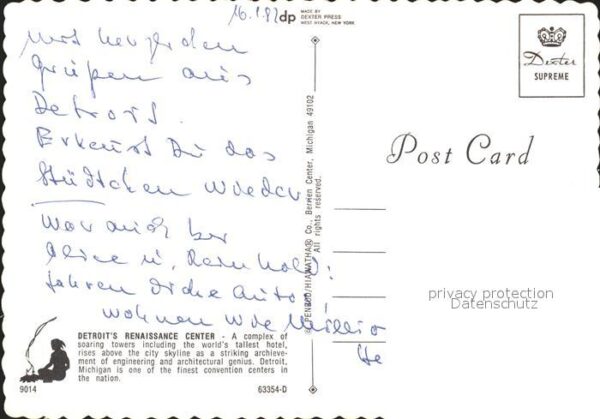 16.1.82
dp MADE BY
DEXTER PRESS
WEST NYACK, NEW YORK
Mit herzlichen
Grüßen aus
Detroit.
Erkennst Du das
Städtchen wieder
War auch bei
Alice u. Reinhold:
fahren dicke Autos
wohnen wie Millio
He
© PENROD/HIAWATHA® Co., Berrien Center, Michigan 49102
All rights reserved.
Dexter
SUPREME
Post Card
privacy protection
Datenschutz
DETROIT'S RENAISSANCE CENTER - A complex of
soaring towers including the world's tallest hotel,
rises above the city skyline as a striking achieve-
ment of engineering and architectural genius. Detroit,
Michigan is one of the finest convention centers in
the nation.
9014
63354-D